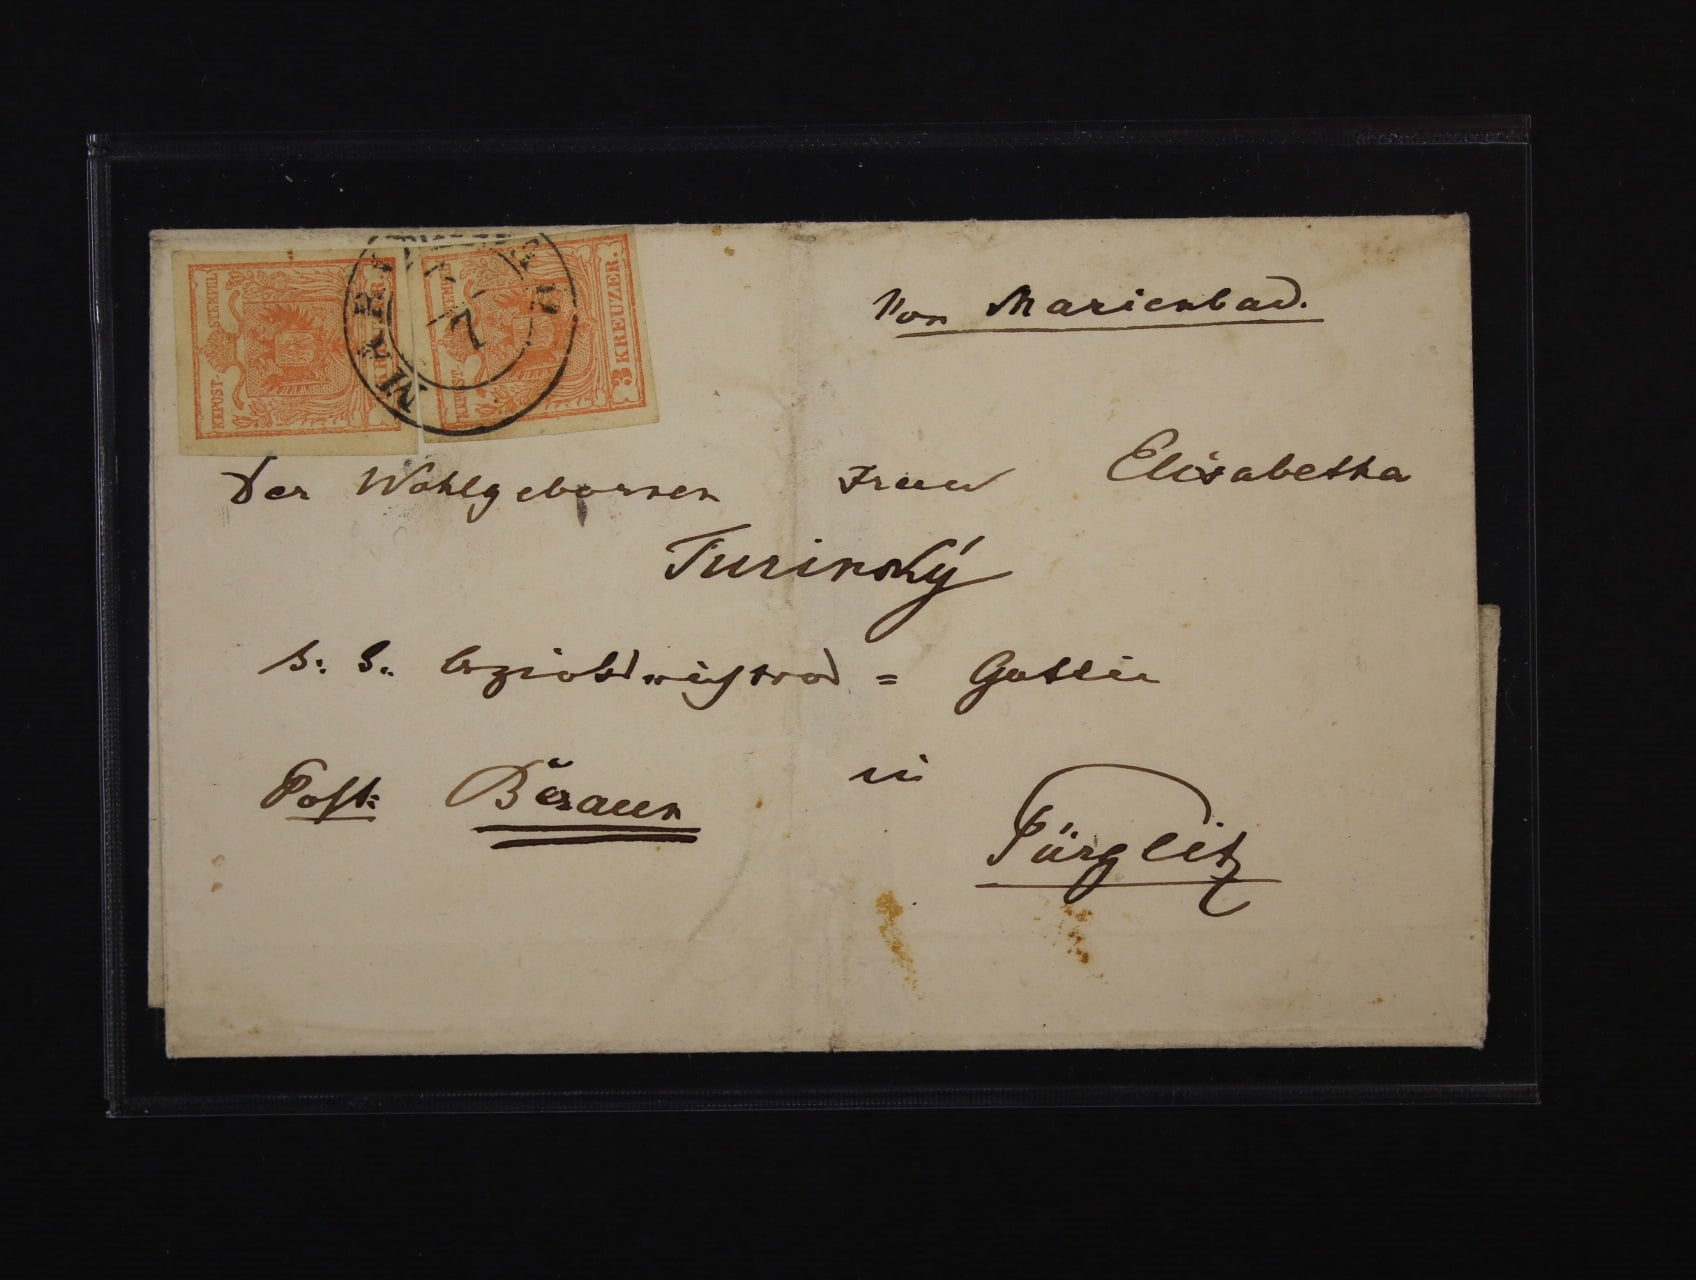 KKPOST-STEMPEL
KKPOST-STEMPEL
3 KREUZER.
MARI
7
Von Marienbad.
Der Wohlgebornen Frau Elisabetha
Turinský
k. k. Bezirks
= Gattin
Post: Beraun in
Pürglitz